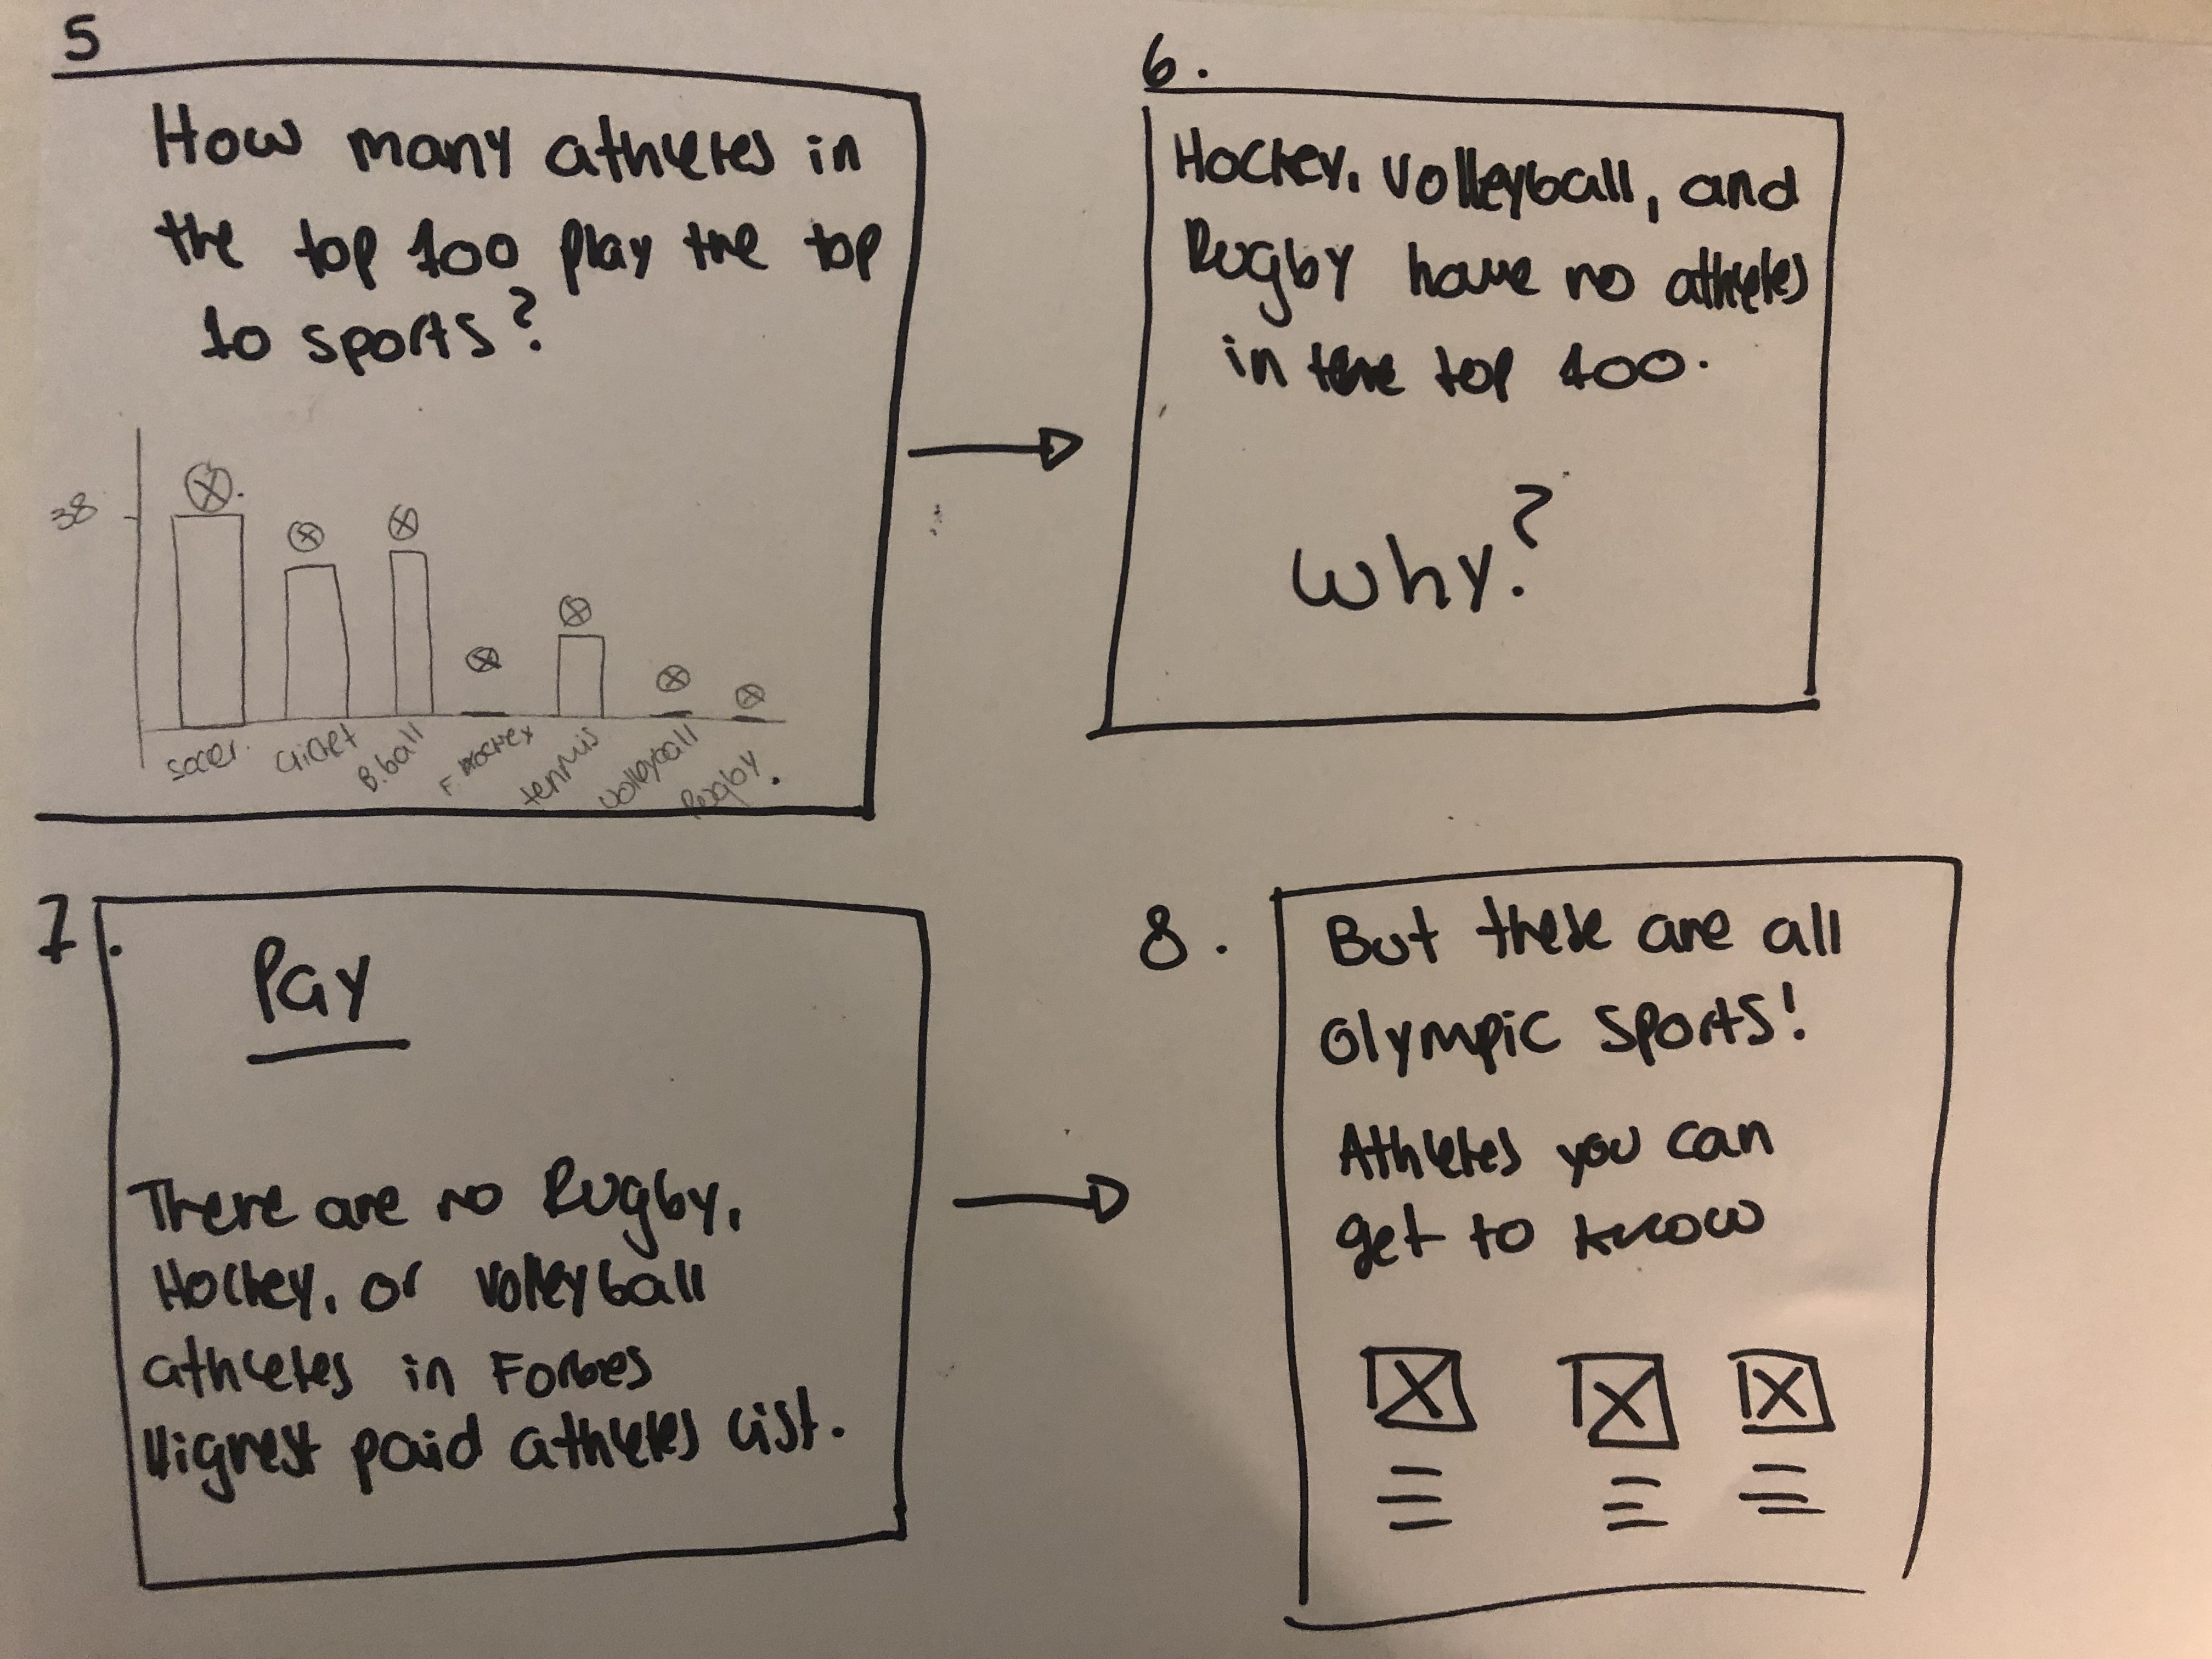 5
How many athletes in
the top 100 play the top
10 sports?
38
soccer.
cricket
B.ball
F. Hockey
tennis
volleyball
Rugby.
6.
Hockey, Volleyball, and
Rugby have no athletes
in the top 100.
why?
7.
Pay
There are no Rugby,
Hockey, or volleyball
athletes in Forbes
Highest paid athletes list.
8.
But these are all
Olympic sports!
Athletes you can
get to know